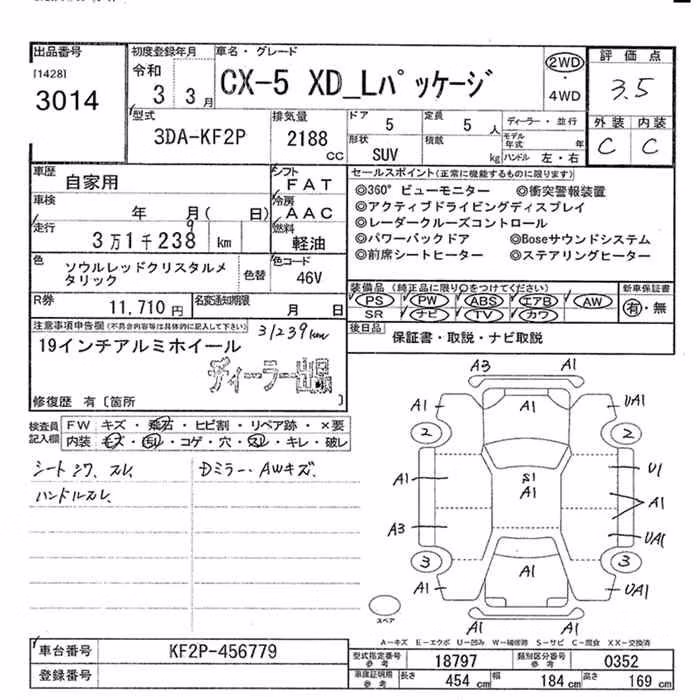 出品番号 初度登録年月 車名・グレード 評価点
[1428] 令和 2WD
3014 3 3月 CX-5 XD_Lパッケージ 4WD 3.5
型式 排気量 ドア 定員 ディーラー・並行 外装 内装
3DA-KF2P 2188 cc 5 5人 モデル年式 年 C C
形状 積載
SUV kg ハンドル 左・右
車歴 自家用 シフト FAT セールスポイント(正常に機能するものに限ります)
車検 年 月( 日) 冷房 AAC ◎360°ビューモニター ◎衝突警報装置
◎アクティブドライビングディスプレイ
走行 3万1千238km 9 燃料 軽油 ◎レーダークルーズコントロール
◎パワーバックドア ◎Boseサウンドシステム
色 ソウルレッドクリスタルメタリック 色替 色コード 46V ◎前席シートヒーター ◎ステアリングヒーター
R券 11,710円 名変通知期限 月 日 装備品(純正品に限り○をつけてください) 新車保証書
PS PW ABS エアB AW 有・無
SR ナビ TV カワ
注意事項申告欄(不具合内容等は具体的に記入して下さい) 31239km 後日品 保証書・取説・ナビ取説
19インチアルミホイール
ディーラー出品
修復歴 有〔箇所 〕
検査員記入欄 FW キズ・飛石・ヒビ割・リペア跡・×要
内装 キズ・汚れ・コゲ・穴・スレ・キレ・破レ
シートシワ、スレ Dミラー・AWキズ.
ハンドルスレ
A3 A1
A1 A1 UA1
2 2
A1 S1 U1
A1 A1
A3 UA1
3 3
A1 A1 UA1
A1
スペア
A-キズ E-エクボ U-凹み W-補修跡 S-サビ C-腐食 XX-交換済
車台番号 KF2P-456779 型式指定番号 参考 18797 類別区分番号 参考 0352
登録番号 車庫証明用 参考 長さ 454cm 幅 184cm 高さ 169cm